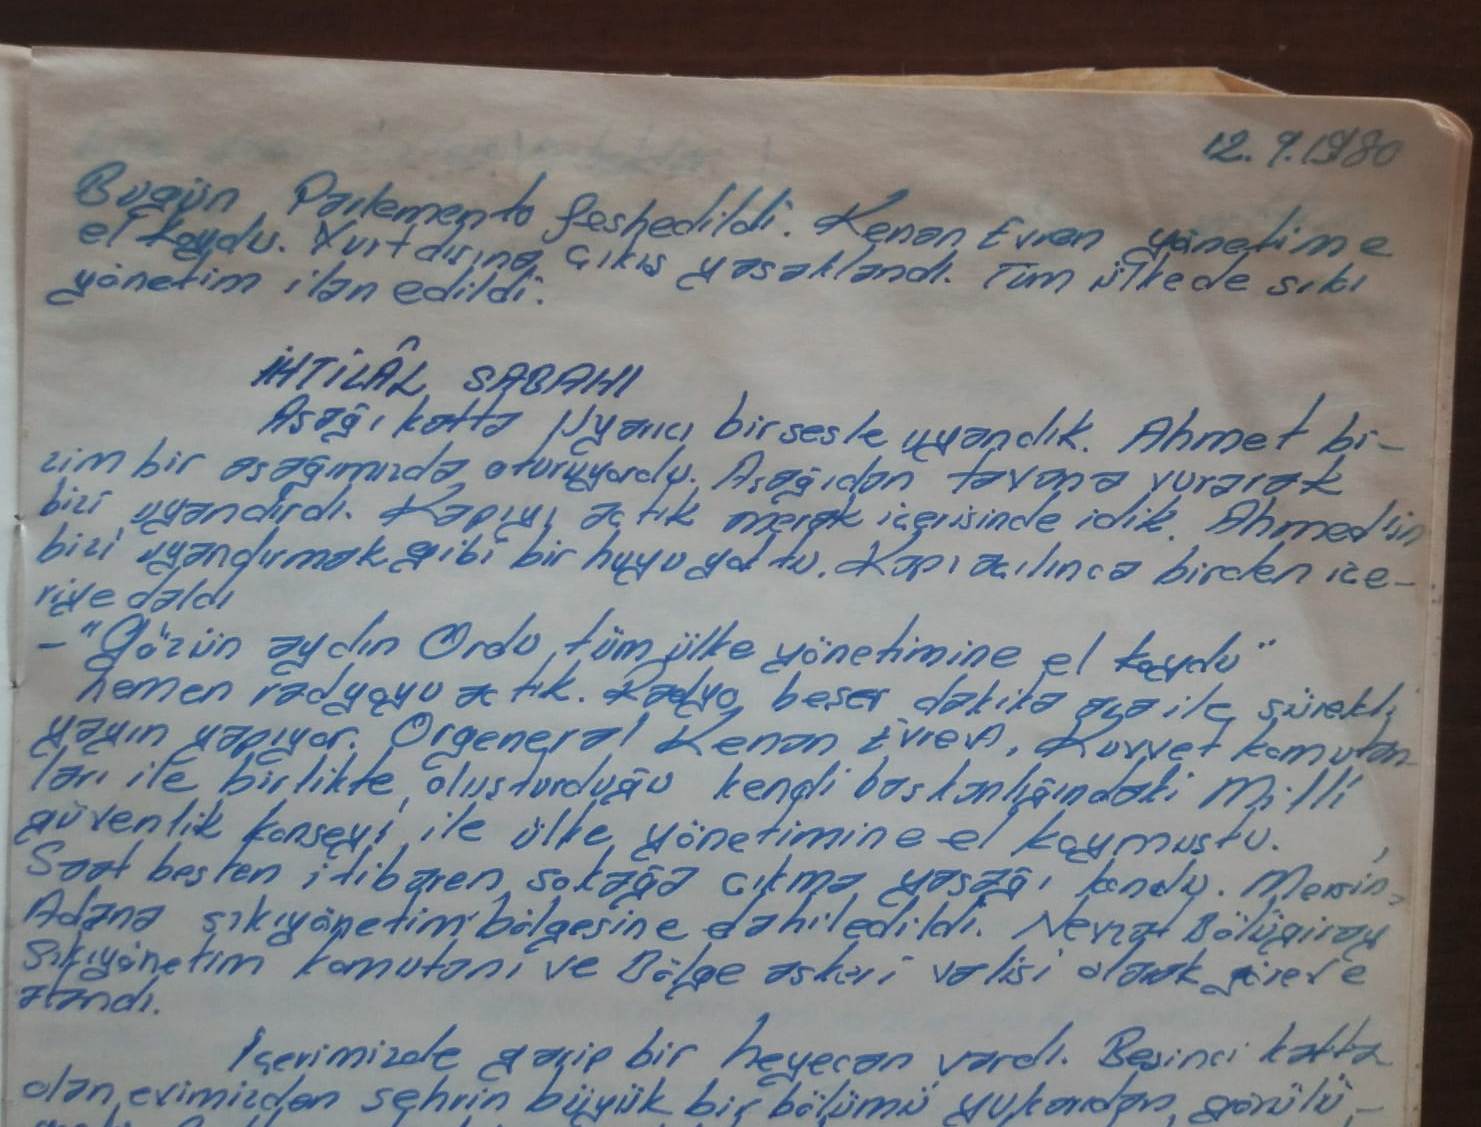 12.9.1980
Bugün Parlemento feshedildi. Kenan Evren yönetime
el koydu. Yurtdışına çıkış yasaklandı. Tüm ülkede sıkı
yönetim ilan edildi.
İHTİLÂL SABAHI
Aşağı katta uyarıcı bir sesle uyandık. Ahmet bi-
zim bir aşağımızda oturuyordu. Aşağıdan tavana vurarak
bizi uyandırdı. Kapıyı açtık merak içerisinde idik. Ahmed'in
bizi uyandırmak gibi bir huyu yoktu. Kapı açılınca birden içe-
riye daldı
- "Gözün aydın Ordu tüm ülke yönetimine el koydu"
hemen radyoyu açtık. Radyo beşer dakika ara ile sürekli
yayın yapıyor. Orgeneral Kenan Evren, Kuvvet komutan-
ları ile birlikte, oluşturduğu kendi başkanlığındaki Milli
güvenlik konseyi ile ülke yönetimine el koymuştu.
Saat beşten itibaren sokağa çıkma yasağı kondu. Mersin,
Adana sıkıyönetim bölgesine dahil edildi. Nevzat Bölügiray
Sıkıyönetim komutanı ve Bölge askeri valisi olarak göreve
atandı.
İçerimizde garip bir heyecan vardı. Beşinci katta
olan evimizden şehrin büyük bir bölümü yukarıdan görülü-